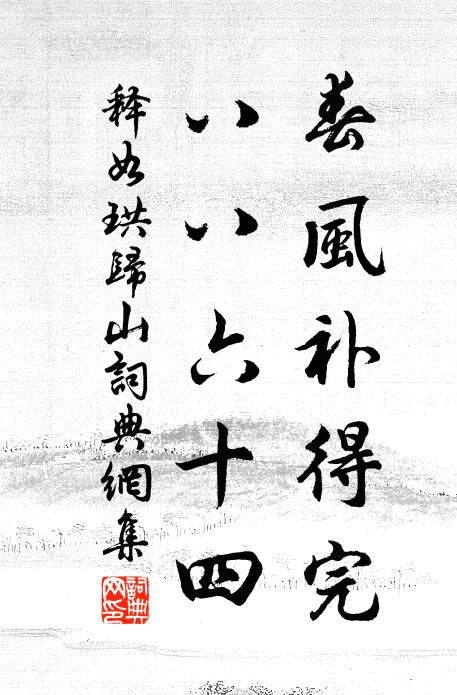 春風补得完
八八六十四
释如珙歸山詞典網集
詞典
网印